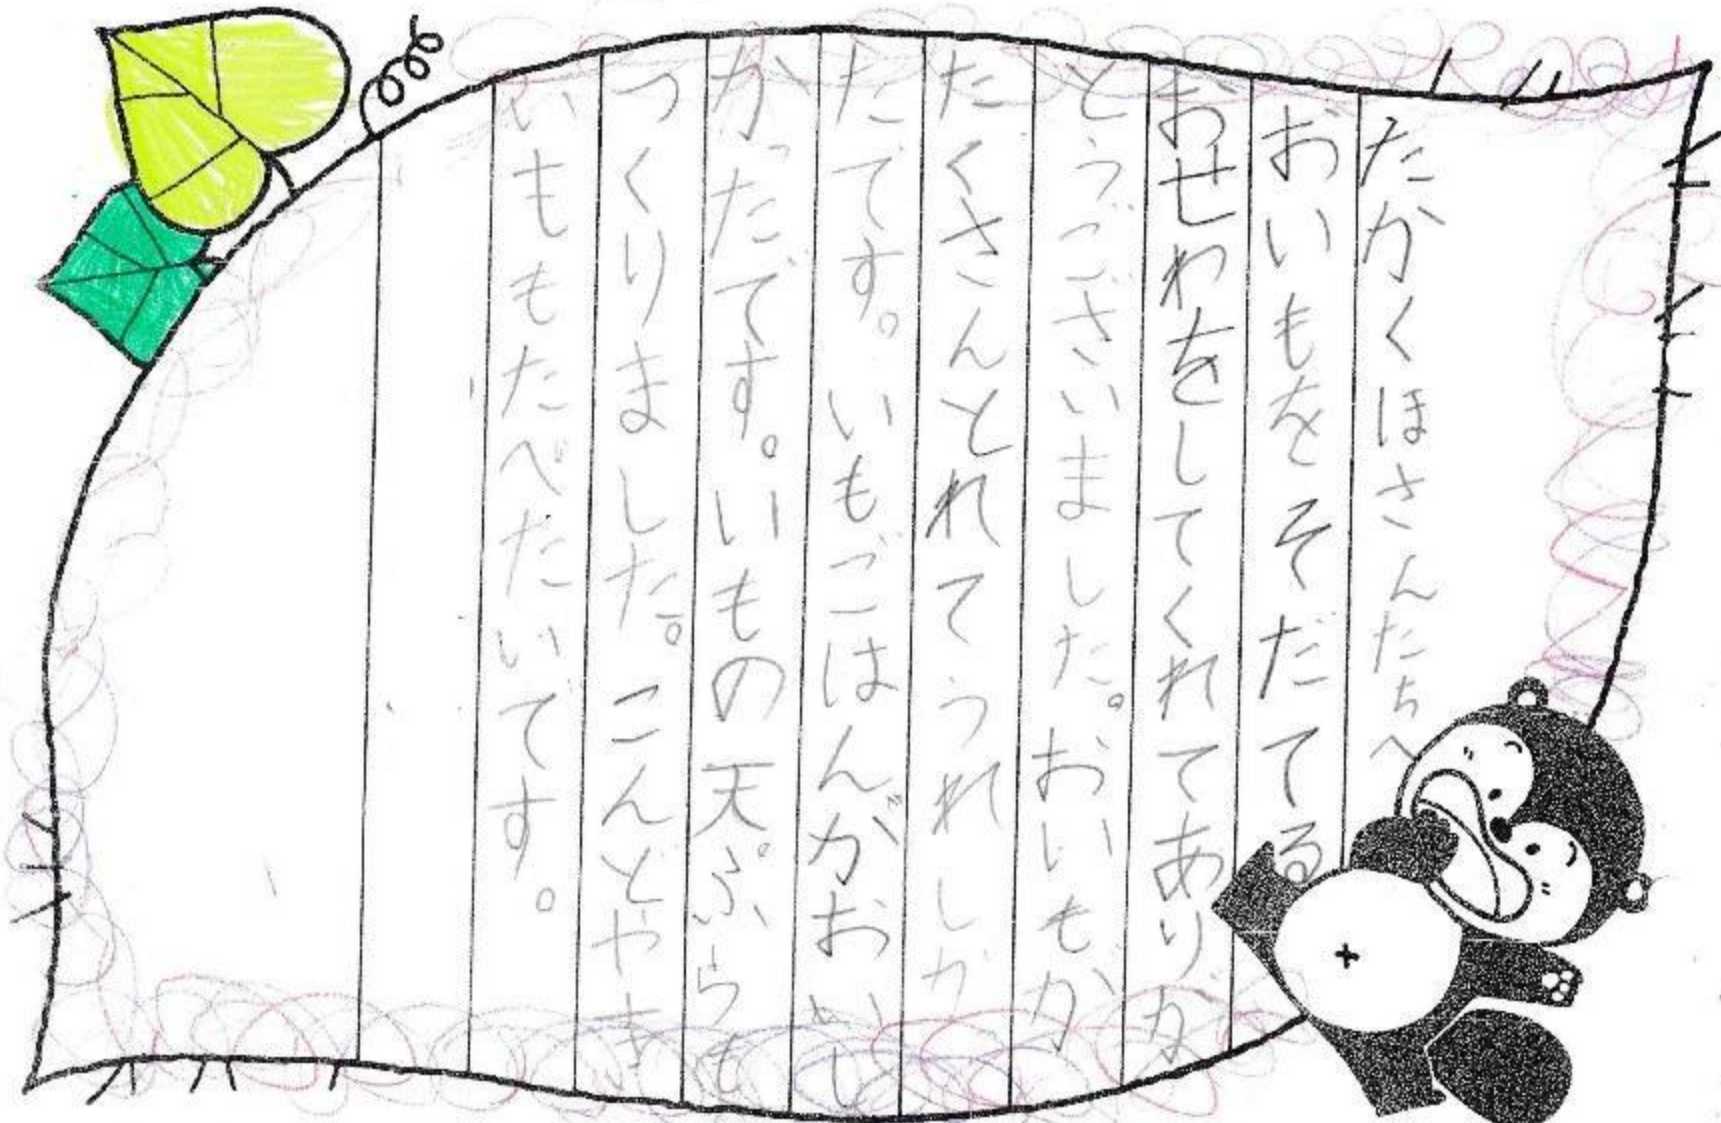 たかくほさんたちへ
おいもをそだてる
おせわをしてくれてありが
とうございました。おいもが
たくさんとれてうれしか
たです。いもごはんがおいし
かったです。いもの天ぷらも
つくりました。こんどやき
いももたべたいです。